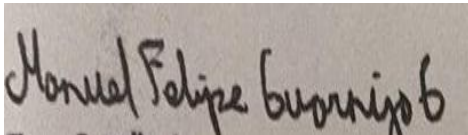 Manuel Felipe Guarnizo G